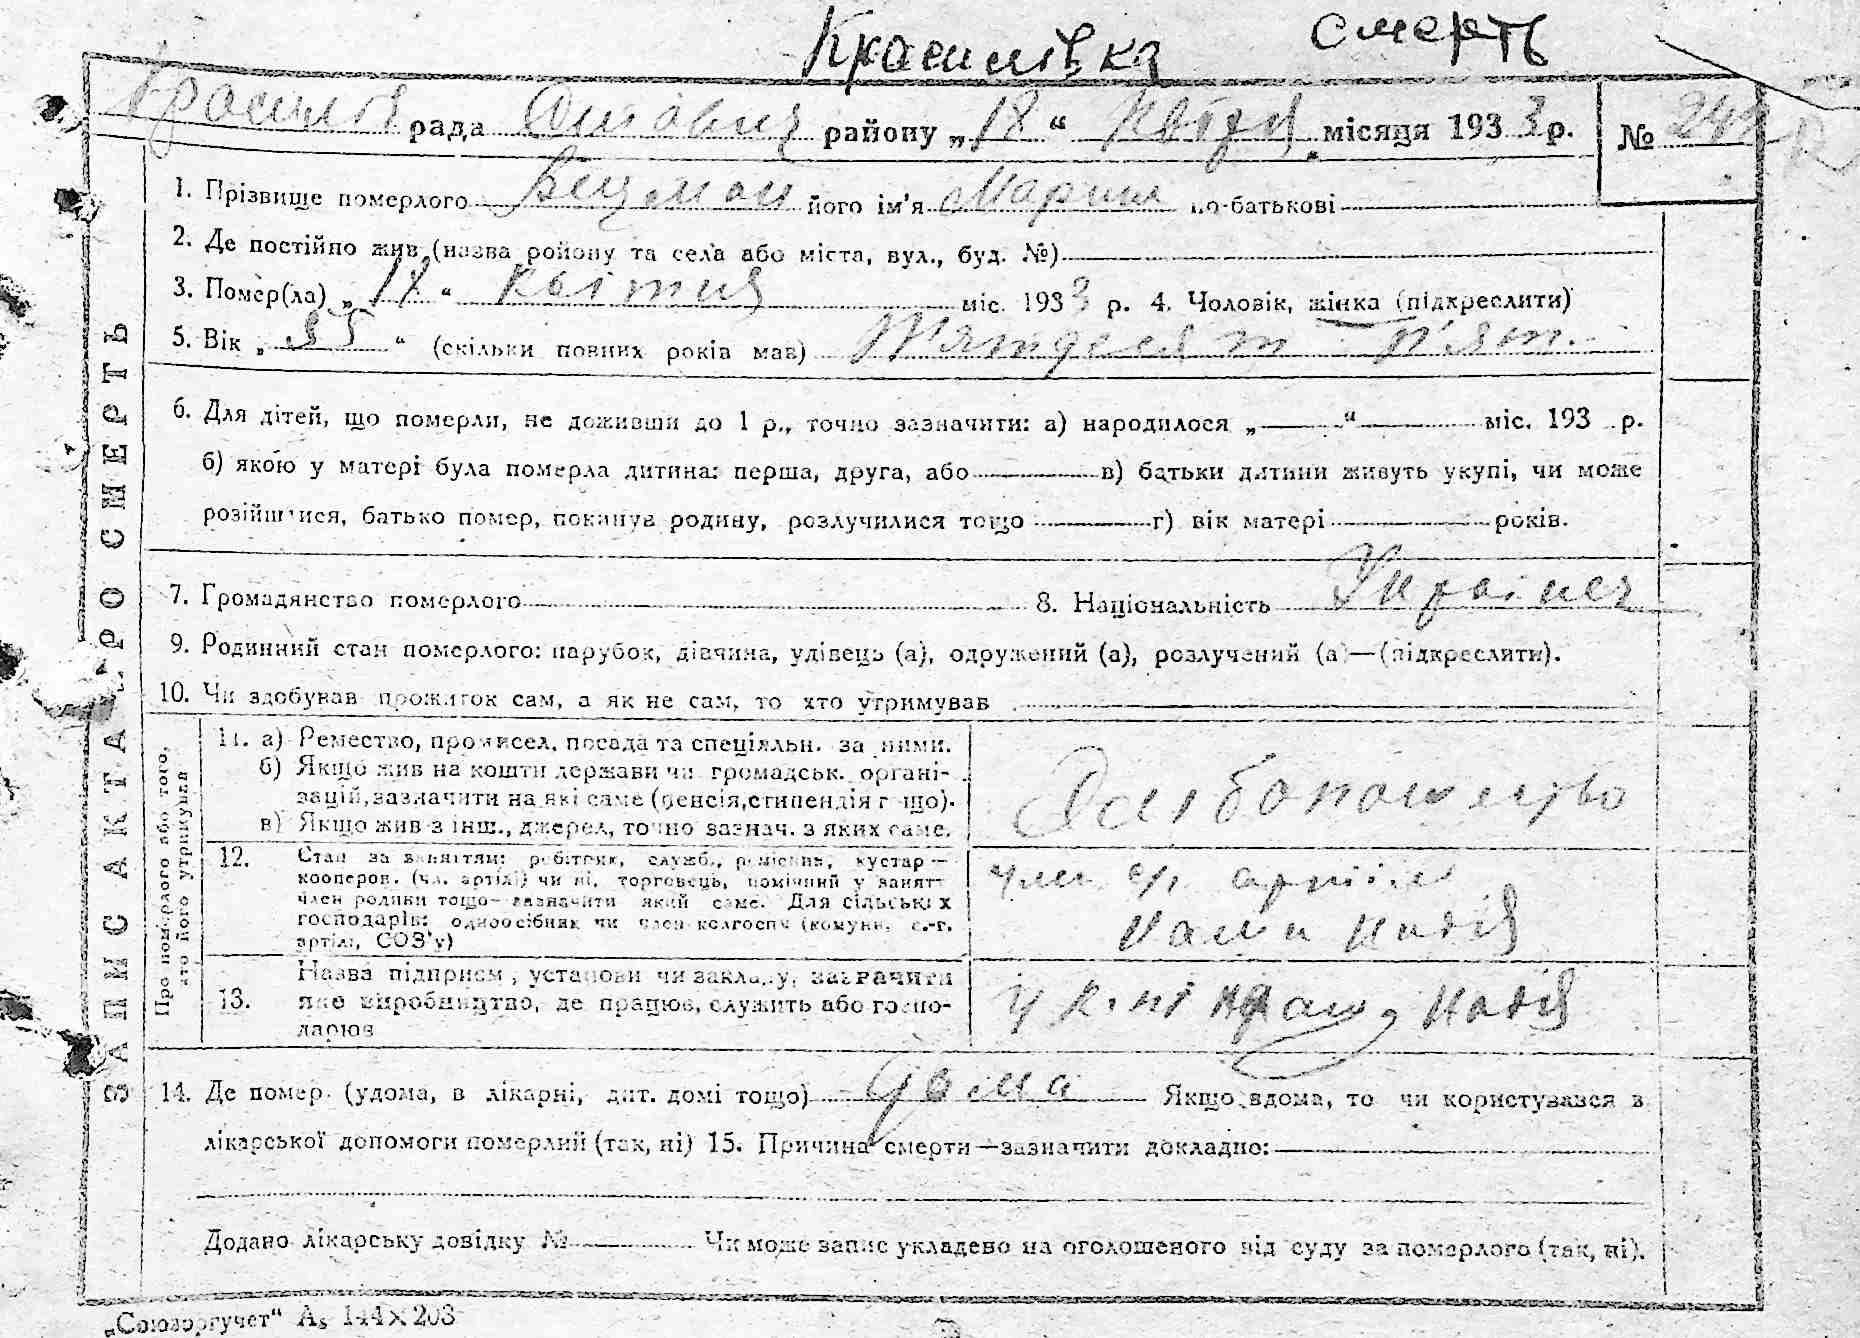 Красилівка смерть
рада району „18“ Квітня місяця 1933 р. №
1. Прізвище померлого його ім'я Марина по-батькові
2. Де постійно жив (назва району та села або міста, вул., буд. №)
3. Помер(ла) „ “ квітня міс. 1933 р. 4. Чоловік, жінка (підкреслити)
5. Вік „55“ (скільки повних років мав) п'ятдесят п'ят.
6. Для дітей, що померли, не доживши до 1 р., точно зазначити: а) народилося „ “ міс. 193 р.
б) якою у матері була померла дитина: перша, друга, або в) батьки дитини живуть укупі, чи може
розійшлися, батько помер, покинув родину, розлучилися тощо г) вік матері років.
7. Громадянство померлого 8. Національність Українец
9. Родинний стан померлого: парубок, дівчина, удівець (а), одружений (а), розлучений (а)—(підкреслити).
10. Чи здобував прожиток сам, а як не сам, то хто утримував
ЗАПИС АКТА ПРО СМЕРТЬ
Про померлого або того,
хто його утримував
11. а) Ремество, промисел, посада та спеціяльн. за ними.
б) Якщо жив на кошти держави чи громадськ. органі-
зацій, зазначити на які саме (пенсія, стипендія т що).
в) Якщо жив з інш., джерел, точно зазнач. з яких саме.
12. Стан за заняттям: робітник, служб., ремісник, кустар —
кооперов. (чл. артілі) чи ні, торговець, помічний у занятт
член родини тощо— зазначити який саме. Для сільських
господарів: одноосібник чи член колгоспу (комуни, с.-г.
артілі, СОЗ'у)
член с/г артіли
Надія
13. Назва підприєм, установи чи закладу, зазначити
яке виробництво, де працює, служить або госпо-
дарює
Надія
14. Де помер (удома, в лікарні, дит. домі тощо) дома Якщо вдома, то чи користувався в
лікарської допомоги померлий (так, ні) 15. Причина смерти—зазначити докладно:
Додано лікарську довідку № Чи може запис укладено на оголошеного від суду за померлого (так, ні).
„Союзоргучет“ А₅ 144×203